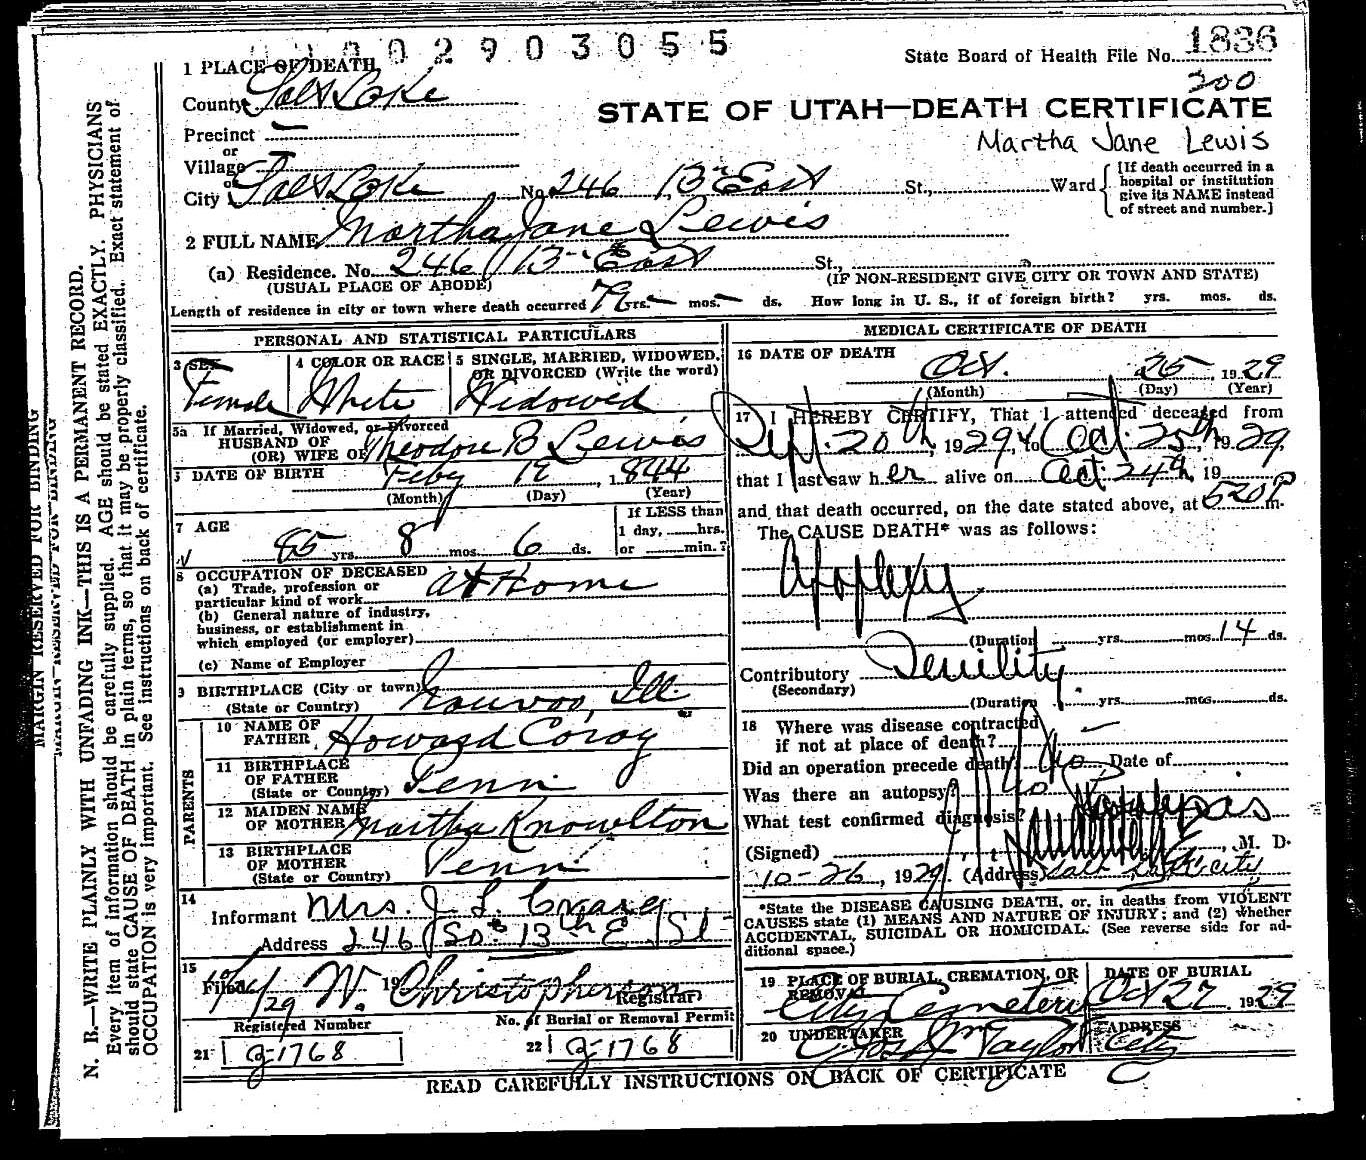 0 1 0 0 2 9 0 3 0 5 5
State Board of Health File No. 1836
200
1 PLACE OF DEATH
County Salt Lake
STATE OF UTAH—DEATH CERTIFICATE
Precinct —
Martha Jane Lewis
or
Village
or
City Salt Lake No. 246 13th East St., Ward
[If death occurred in a
hospital or institution
give its NAME instead
of street and number.]
2 FULL NAME Martha Jane Lewis
(a) Residence. No. 246 13th East St.,
(USUAL PLACE OF ABODE)
(IF NON-RESIDENT GIVE CITY OR TOWN AND STATE)
Length of residence in city or town where death occurred yrs. — mos. — ds. How long in U. S., if of foreign birth? yrs. mos. ds.
PERSONAL AND STATISTICAL PARTICULARS
3 SEX
Female
4 COLOR OR RACE
White
5 SINGLE, MARRIED, WIDOWED,
OR DIVORCED (Write the word)
Widowed
5a If Married, Widowed, or Divorced
HUSBAND OF
(OR) WIFE OF Theodore B Lewis
DATE OF BIRTH Feby 19, 1844
(Month) (Day) (Year)
7 AGE
85 yrs. 8 mos. 6 ds.
If LESS than
1 day, hrs.
or min.?
8 OCCUPATION OF DECEASED
(a) Trade, profession or
particular kind of work At Home
(b) General nature of industry,
business, or establishment in
which employed (or employer)
(c) Name of Employer
9 BIRTHPLACE (City or town)
(State or Country) Nauvoo, Ill.
PARENTS
10 NAME OF
FATHER Howard Coray
11 BIRTHPLACE
OF FATHER
(State or Country) Penn
12 MAIDEN NAME
OF MOTHER Martha Knowlton
13 BIRTHPLACE
OF MOTHER
(State or Country) Penn
14
Informant Mrs. J. L.
Address 246 So. 13th E. St
15
Filed 29 W. 19 Christopherson
Registrar
Registered Number
21 g-1768
No. of Burial or Removal Permit
22 g-1768
MEDICAL CERTIFICATE OF DEATH
16 DATE OF DEATH
Oct. 25 1929
(Month) (Day) (Year)
17 I HEREBY CERTIFY, That I attended deceased from
Sept. 20th, 1929, to Oct. 25th 1929,
that I last saw her alive on Oct. 24th, 19
and that death occurred, on the date stated above, at 520 P m.
The CAUSE DEATH* was as follows:
Apoplexy
(Duration yrs. mos. 14 ds.
Contributory Senility.
(Secondary)
(Duration yrs. mos. ds.
18 Where was disease contracted
if not at place of death? —
Did an operation precede death? No Date of
Was there an autopsy? No
What test confirmed diagnosis?
(Signed) , M. D.
10-26, 1929. (Address) Salt Lake City
*State the DISEASE CAUSING DEATH, or, in deaths from VIOLENT
CAUSES state (1) MEANS AND NATURE OF INJURY; and (2) whether
ACCIDENTAL, SUICIDAL OR HOMICIDAL. (See reverse side for ad-
ditional space.)
19 PLACE OF BURIAL, CREMATION, OR
REMOVAL
City Cemetery
DATE OF BURIAL
Oct 27 1929
20 UNDERTAKER
Taylor
ADDRESS
City
READ CAREFULLY INSTRUCTIONS ON BACK OF CERTIFICATE
MARGIN RESERVED FOR BINDING
MARGIN RESERVED FOR BINDING
N. B.—WRITE PLAINLY WITH UNFADING INK—THIS IS A PERMANENT RECORD.
Every item of information should be carefully supplied. AGE should be stated EXACTLY. PHYSICIANS
should state CAUSE OF DEATH in plain terms, so that it may be properly classified. Exact statement of
OCCUPATION is very important. See instructions on back of certificate.